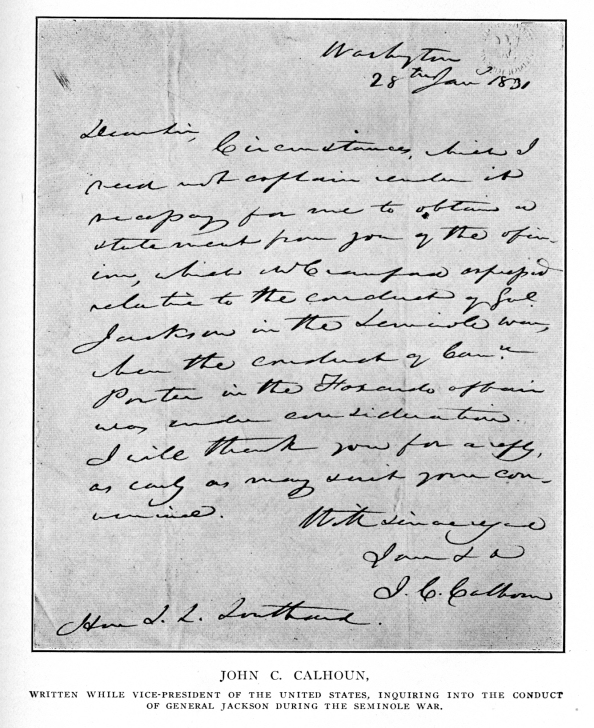 Washington
28th Jany 1831
Dear Sir,
Circumstances, which I
need not explain render it
necessary for me to obtain a
statement from you of the opin-
ion, which Mr Crawford expressed
relative to the conduct of Genl
Jackson in the Seminole war,
when the conduct of Comre
Porter in the Foxardo affair
was under consideration.
I will thank you for a reply,
as early as may suit your con-
venience.
With sincere
I am & &
J. C. Calhoun
Hon S. L. Southard.
JOHN C. CALHOUN,
WRITTEN WHILE VICE-PRESIDENT OF THE UNITED STATES, INQUIRING INTO THE CONDUCT
OF GENERAL JACKSON DURING THE SEMINOLE WAR.